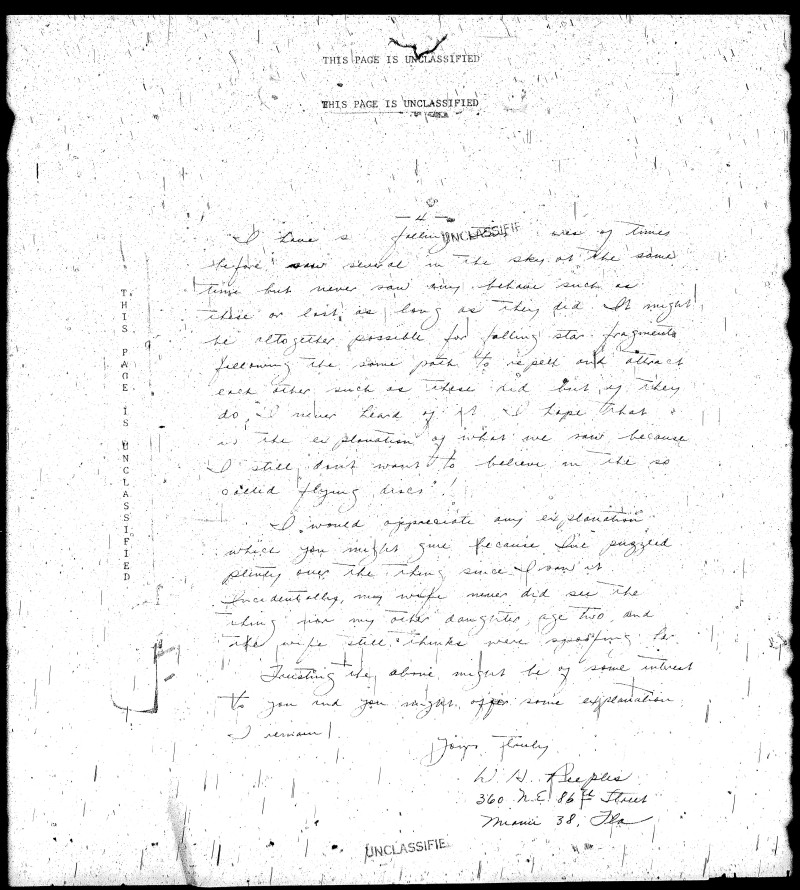 THIS PAGE IS UNCLASSIFIED
THIS PAGE IS UNCLASSIFIED
- 4 -
UNCLASSIFIE
I have s falling of times
before saw several in the sky at the same
time but never saw any behave such as
these or last as long as they did. It might
be altogether possible for falling star fragments
following the same path to repell and attract
each other such as these did but if they
do, I never heard of it. I hope that
is the explanation of what we saw because
I still dont want to believe in the so
called "flying discs"!
I would appreciate any explanation
which you might give because I've puzzled
plenty over the thing since I saw it.
Incidentally, my wife never did see the
thing nor my other daughter, age two, and
the wife still thinks were spoofing her.
Trusting the above might be of some interest
to you and you might offer some explanation
I remain
Yours truly
W. H. Peeples
360 N.E. 86th Street
Miami 38, Fla
THIS PAGE IS UNCLASSIFIED
UNCLASSIFIE